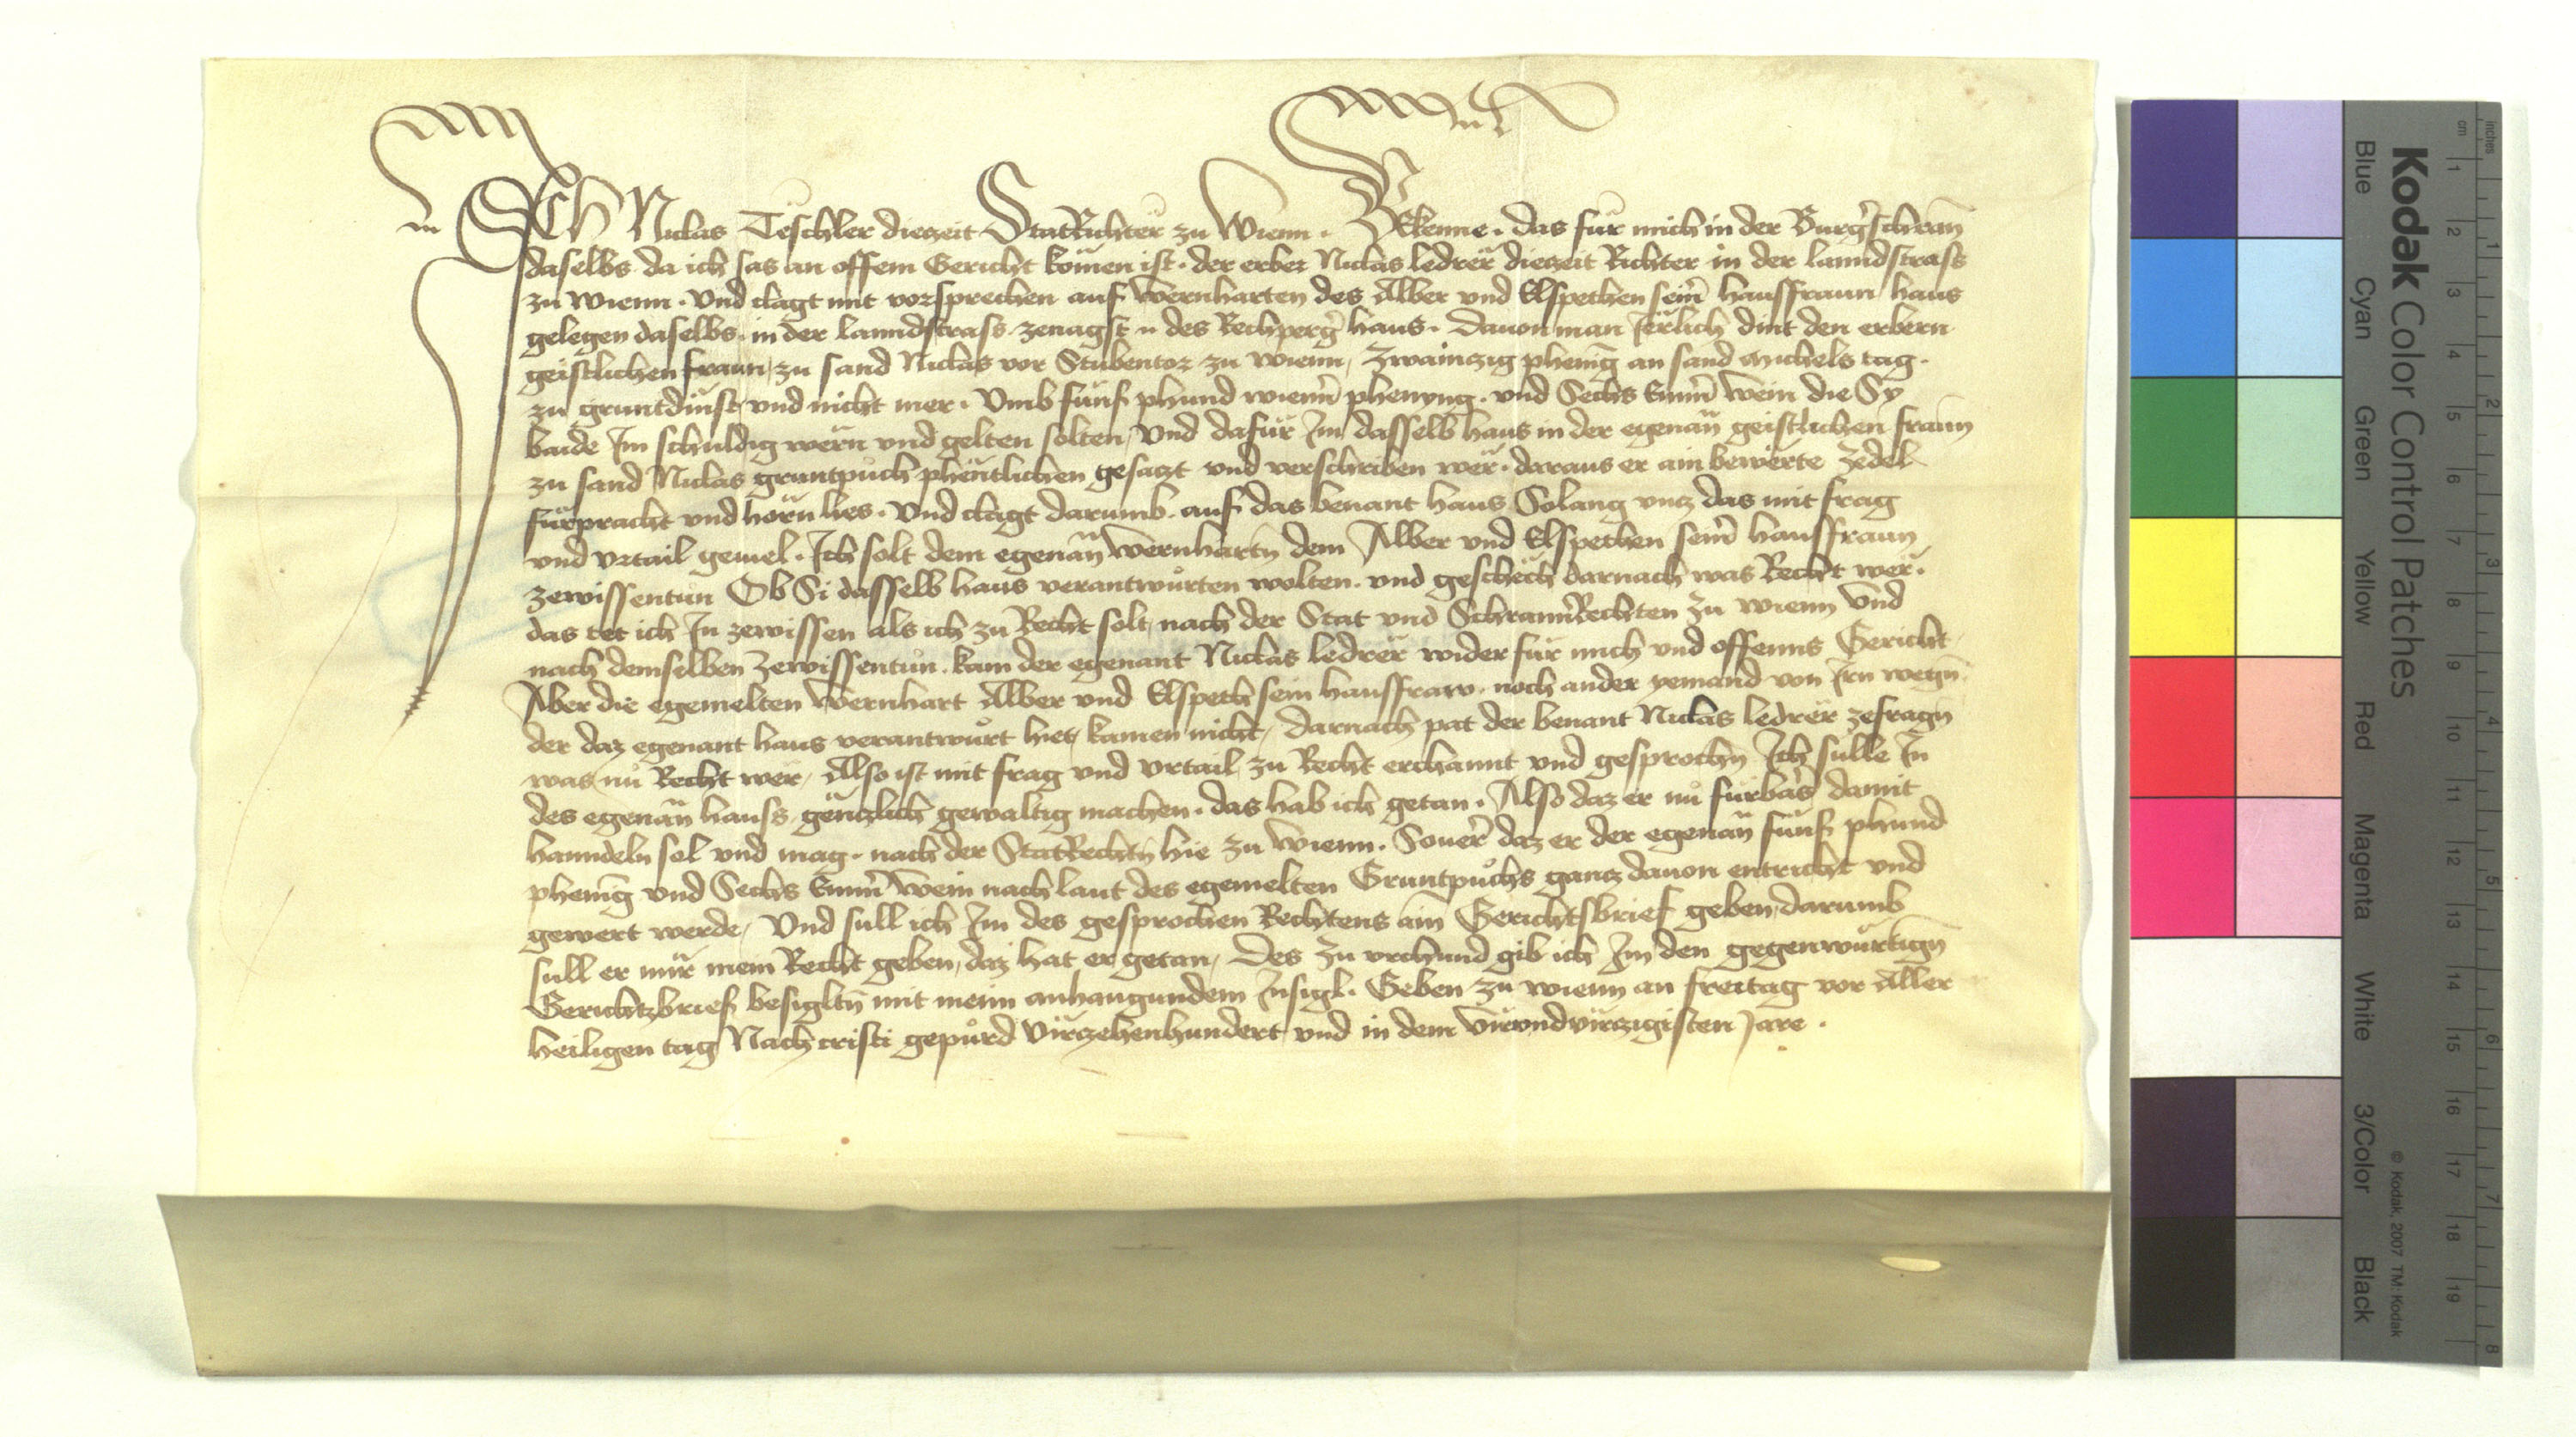 ICH Niclas Teschler diezeit StatRichter zu Wienn. Bekenne. das für mich in der Burgerschrann
daselbs da ich sas an offem Gericht komen ist. der erber Niclas ledrer diezeit Richter in der lanndstrass
zu Wienn. Vnd clagt mit vorsprechen auf Wernharten des Alber vnd Elspethen seinr hausfraun haus
gelegen daselbs. in der lanndstrass. zenagst des haus. Dauon man Jerlich dint den erbern
geistlichen fraun, zu sand Niclas vor Stubentor zu Wienn, Zwainczig phening an sand Michels tag.
zu gruntdinst, vnd nicht mer. Vmb fünf phund wienner phenyng. vnd Sechs Emmer Wein die Sy
baide Im schuldig wern vnd gelten solten, Vnd dafür Im dasselb haus in der egenann geistlichen fraun
zu sand Niclas gruntpuch phentlichen gesaczt vnd verschriben wer. daraus er ain bewerte Zedel
fürpracht vnd hörn lies. Vnd clagt darumb. auf das benant haus Solang vncz das mit frag
vnd vrtail geuiel. Ich solt dem egenann Wernhartn dem Alber vnd Elspethen seinr hausfraun
zewissentün Ob Si dasselb haus verantwürten wolten. vnd geschech darnach was Recht wer.
das tet ich In zewissen als ich zu Recht solt, nach der Stat vnd SchrannRechten zu Wienn Vnd
nach demselben Zewissentün. kam der egenant Niclas ledrer wider für mich vnd offenns Gericht,
Aber die egemelten Wernhart Alber vnd Elspeth sein hausfraw. noch ander yemand von Irn wegn
der daz egenant haus verantwürt hiet, kamen nicht, Darnach pat der benant Niclas ledrer zefragn
was nu Recht wer, Also ist mit frag vnd vrtail, zu Recht erchannt vnd gesprochn Ich sulle In
des egenann hauss, genczlich gewaltig machen. das hab ich getan. Also daz er nu fürbaser damit
hanndeln sol vnd mag. nach der StatRechtn hie zu Wienn. Souerr daz er der egenann fünf phund
phening vnd Sechs Emmer Wein nach laut des egemelten Gruntpuchs gancz dauon entricht vnd
gewert werde, Vnd sull ich Im des gesprochen Rechtens ain Gerichtsbrief geben, darumb
sull er mir mein Recht geben, daz hat er getan, Des zu vrchund gib ich Im den gegenwürtign
Gerichtzbrief besigltn mit meim anhangundem Insigl. Geben zu Wienn an freitag vor Aller
heiligen tag Nach cristi gepurd Virczehenhundert vnd in dem Virvndvirczigisten Jare.
Kodak Color Control Patches
Blue Cyan Green Yellow Red Magenta White 3/Color Black
© Kodak, 2007 TM: Kodak
cm 1 2 3 4 5 6 7 8 9 10 11 12 13 14 15 16 17 18 19
inches 1 2 3 4 5 6 7 8